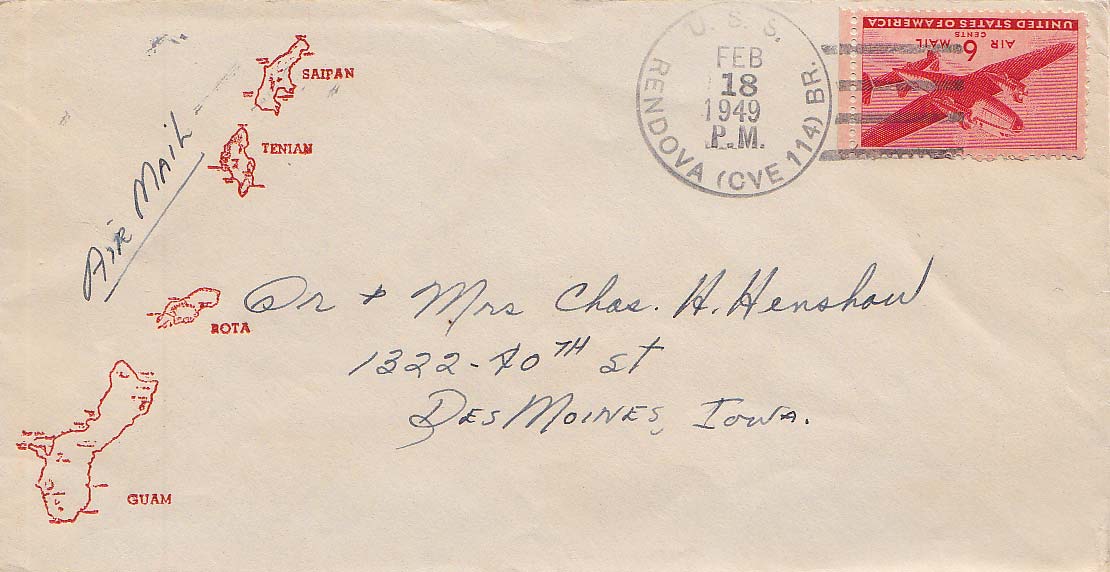 SAIPAN
TENIAN
AIR MAIL
ROTA
GUAM
U. S. S.
RENDOVA (CVE 114) BR.
FEB
18
1949
P.M.
UNITED STATES OF AMERICA
AIR MAIL
6
CENTS
Dr + Mrs Chas. H. Henshaw
1322-40TH St
Des Moines, Iowa.